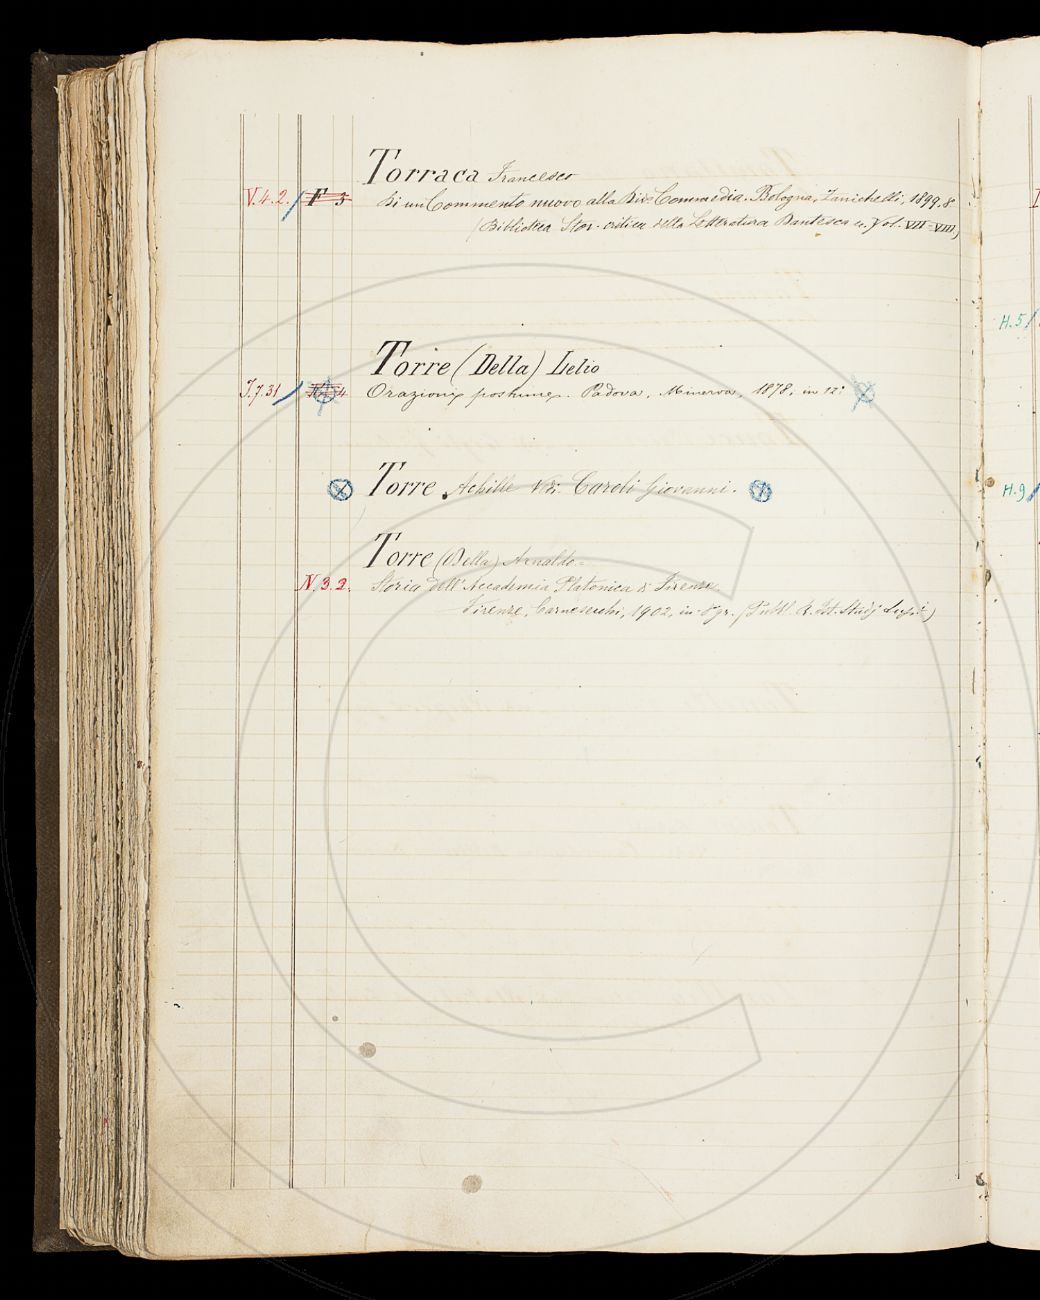 Torraca Francesco
V.4.2. / F 3 Di un Commento nuovo alla Div. Commedia. Bologna, Zanichelli, 1899. 8
(Biblioteca Stor. critica della Letteratura Dantesca ec. Vol. VII-VIII)
Torre (Della) Lelio
I.7.31 / Orazioni postume. Padova, Minerva, 1878, in 12°
Torre Achille Vedi Caroli Giovanni.
Torre (Della) Arnaldo =
N.3.2. Storia dell'Accademia Platonica di Firenze.
Firenze, Carnesecchi, 1902, in-8 gr. (Pubbl. R. Ist. Studj Sup.)
H.5/
H.9/